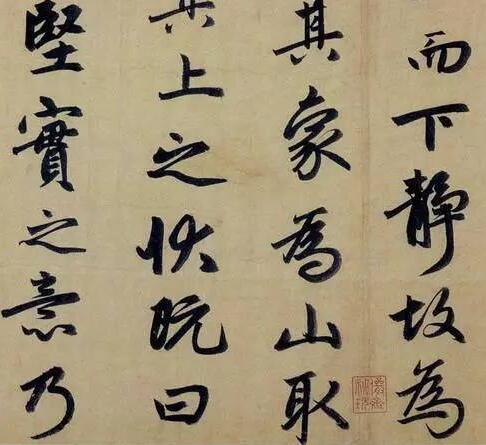 而下靜故為
其象為山取
其上之状既曰
堅實之意乃